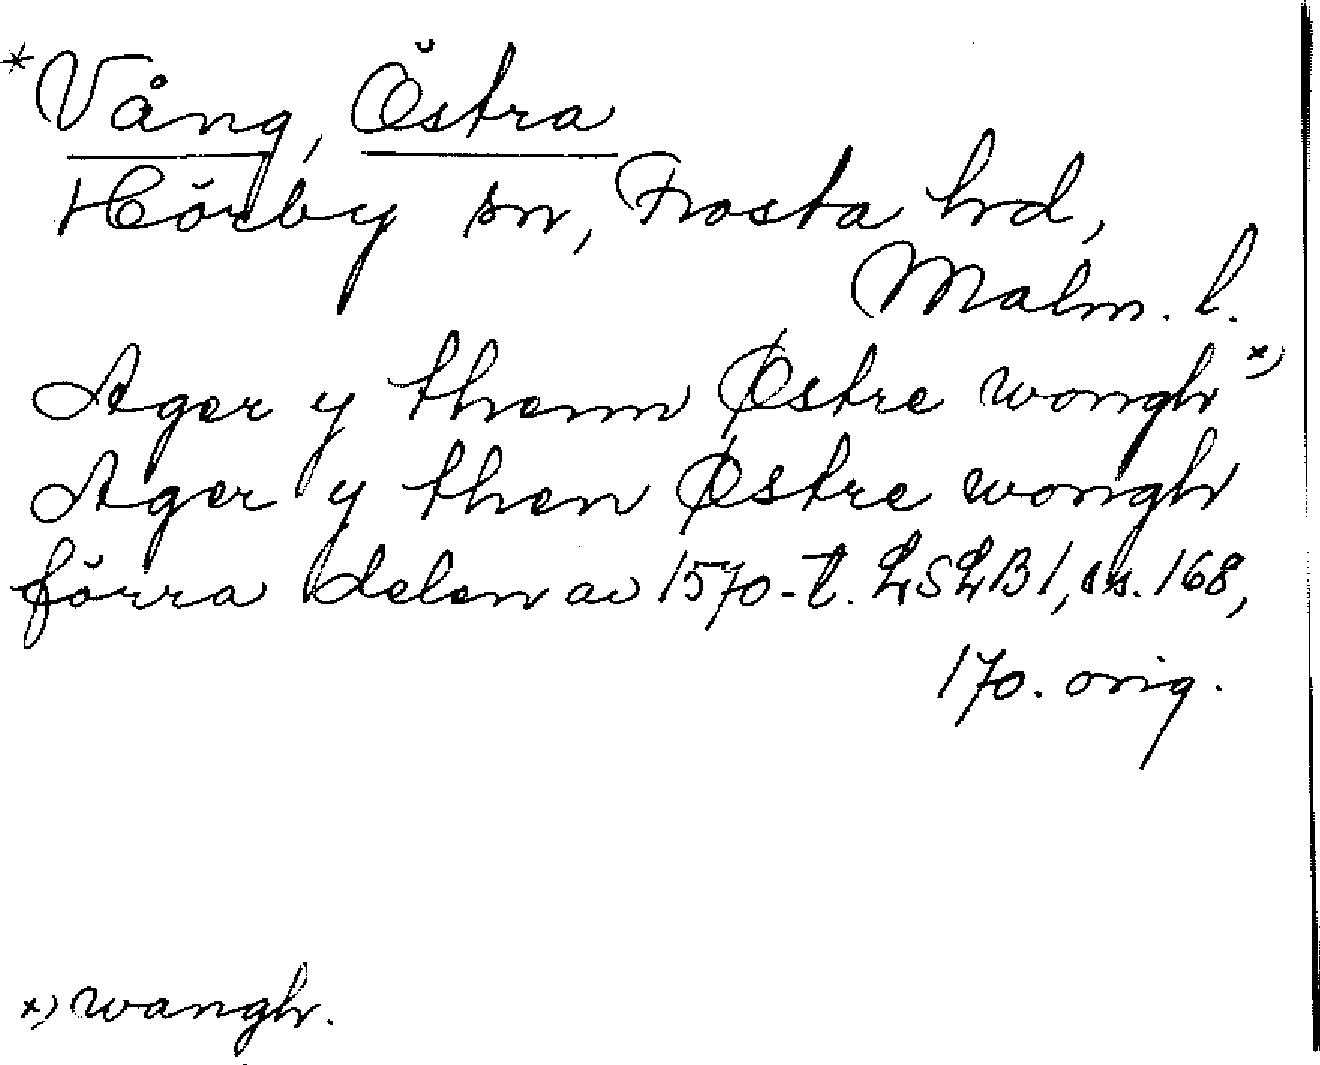 *Vång, Östra
Hörby sn, Frosta hd,
Malm. l.
Ager y thenn Østre wongh x)
Ager y then Østre wongh
förra delen av 1570-t. LSLB 1, ss. 168,
170. orig.
x) wangh.